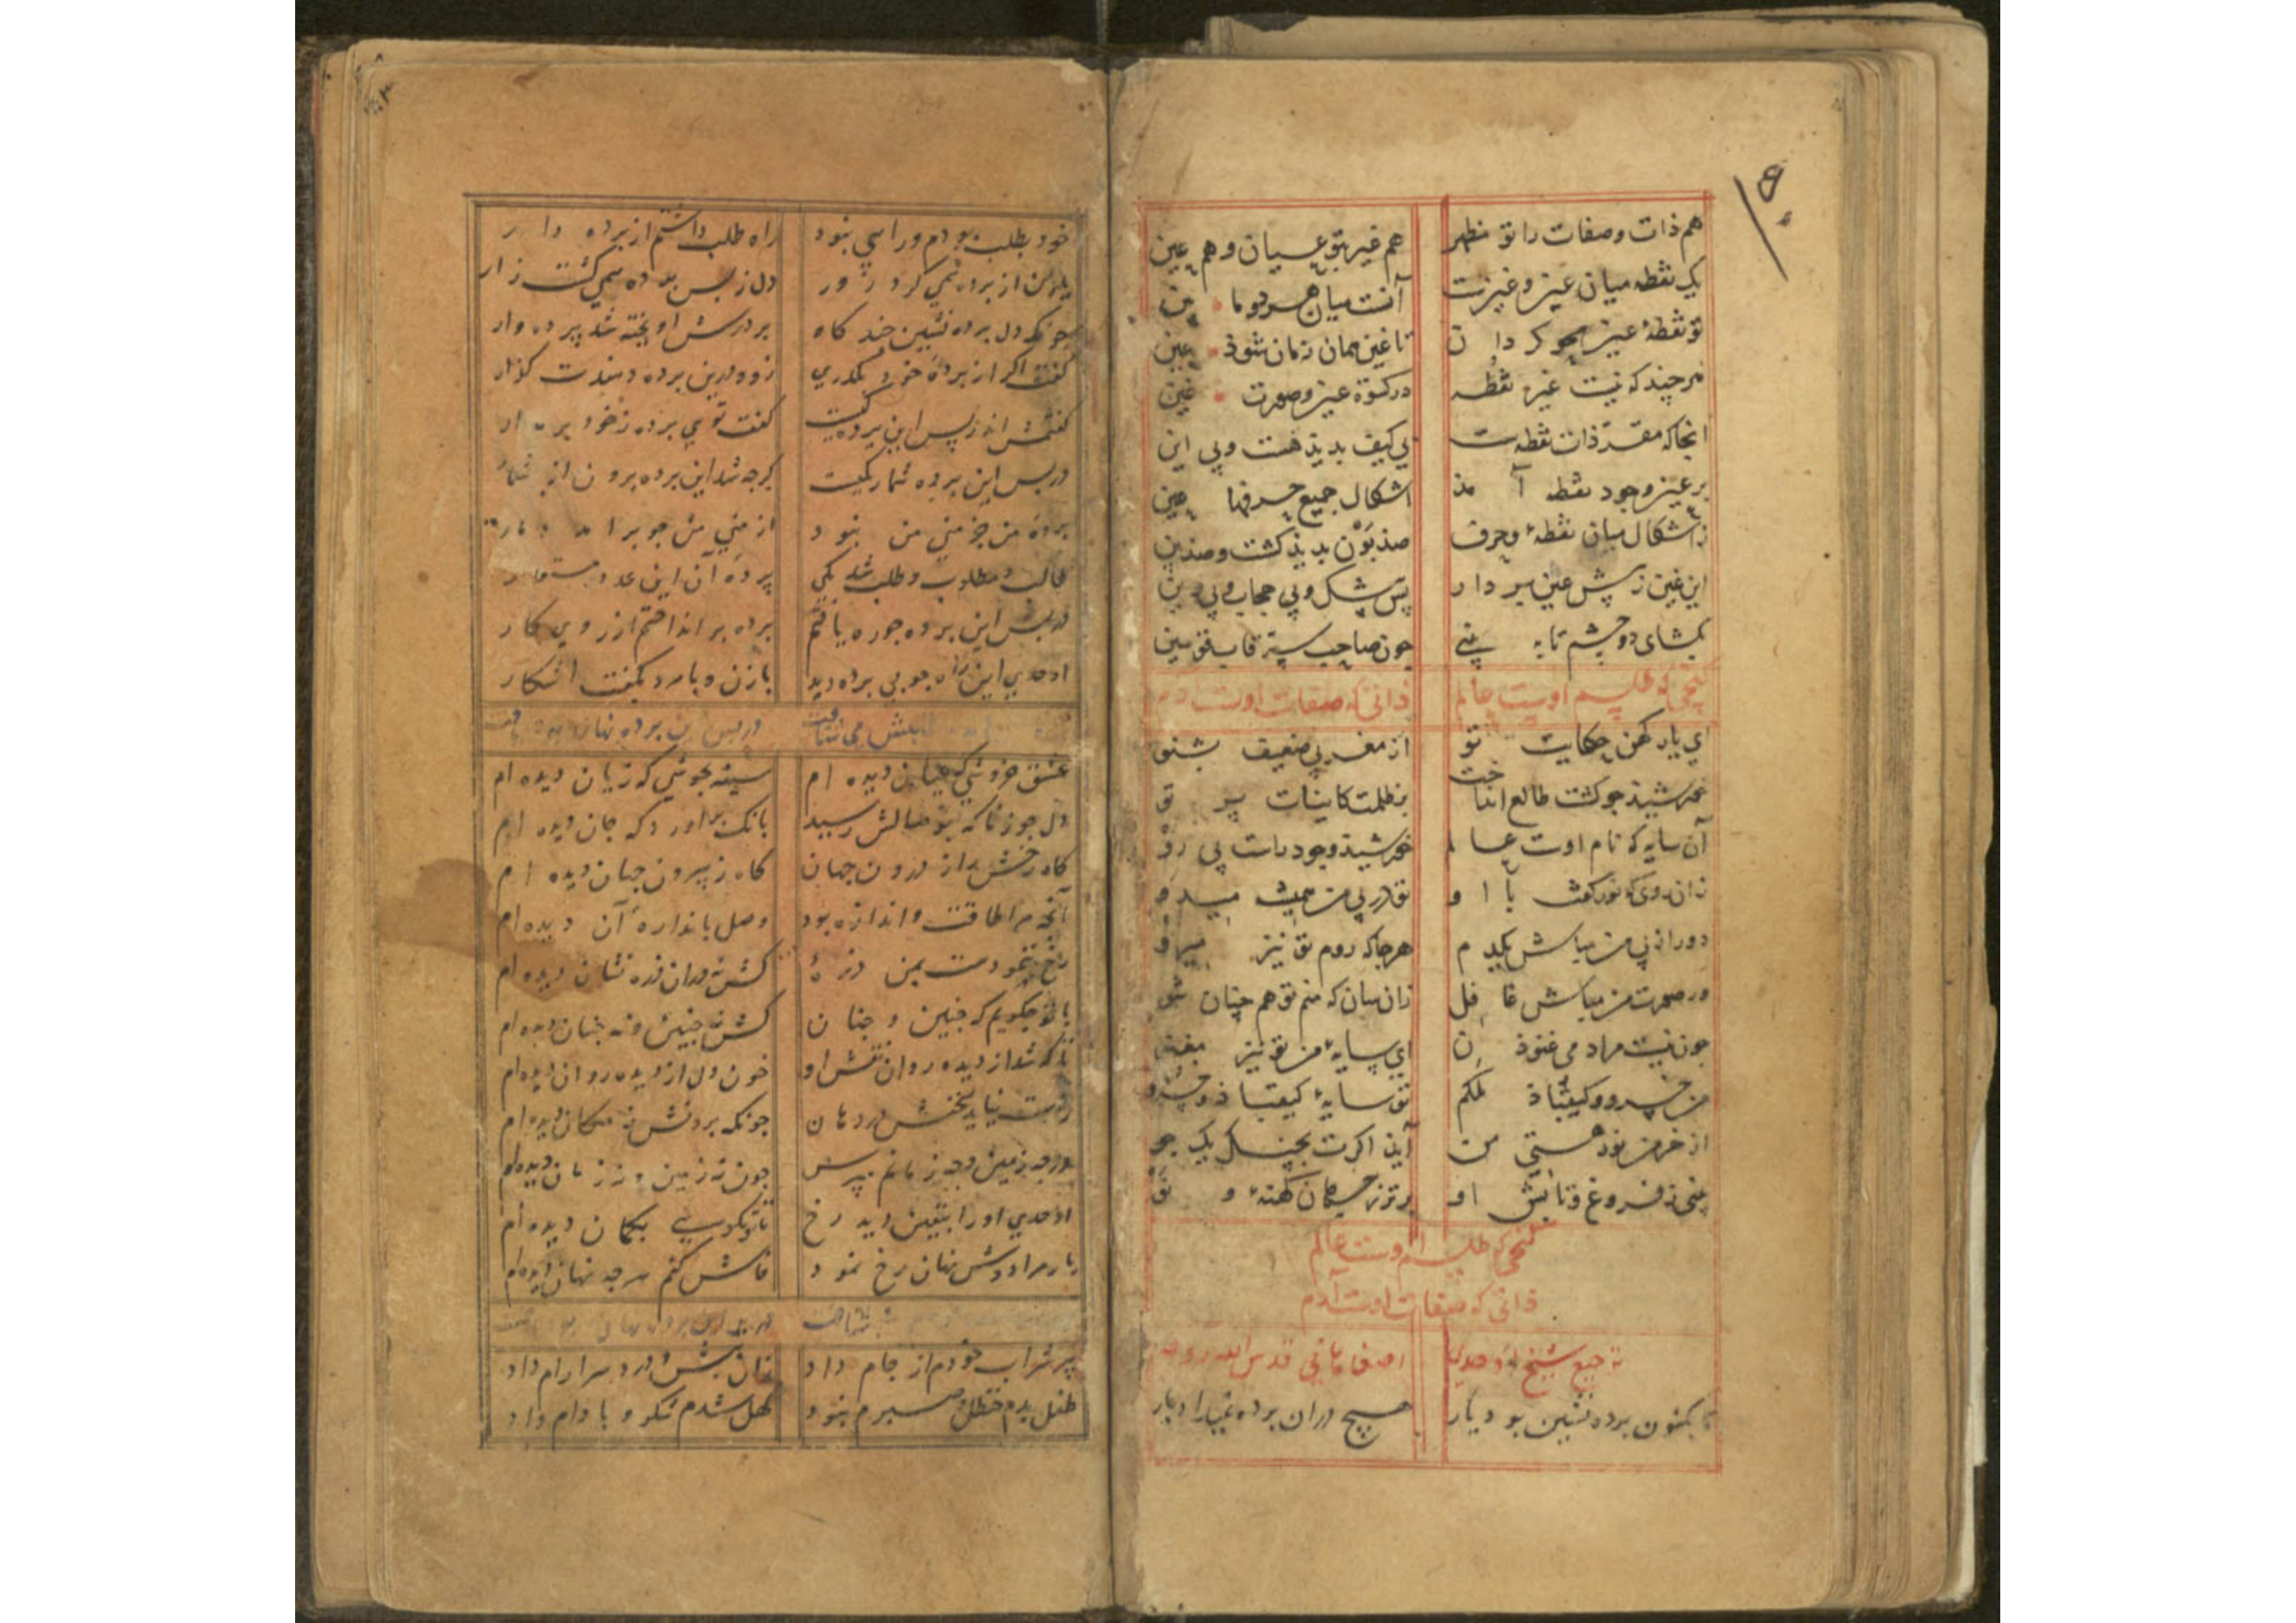 هم ذات وصفات را تو مظهر هم غیر تو عیان و هم عین
یک نقطه میان عین و غینست آنست میان هر دو ما بین
تو نقطهٔ غین محو کردان تا غین همان زمان شود عین
هر چند که نیست غیر نقطه در کسوة عین و صورت غین
انجا که مقر ذات نقطه ست بی کیف بدیذ هست و بی این
بر عین وجود نقطه آمذ اشکال جمیع حرفها عین
ز اشکال میان نقطهٔ و حرف صذ بون بدیذ کشت و صذ بین
این غین ز پیش عین بردار پس شک و بی حجاب و بی رین
بکشای دو چشم تا به بینی چون صاحب سر قاب قوسین
کنجی که طلسم اوست عالم ذاتی که صفات اوست ادم
ای یار کهن حکایت تو از مغربی ضعیف بشنو
خورشیذ جو کشت طالع انداخت بر ظلمت کاینات پر تو
آن سایه که نام اوست عالم خورشیذ وجود راست پی رو
زان روی که نور کفت با او تو در پی من همیشه میدو
دور از پی من مباش یکدم هر جا که روم تو نیز میرو
در صورت من مباش غافل زان سان که منم تو هم چنان شو
چون نیست مراد می غنوذن ای سایهٔ من تو نیز مغنو
من خسرو و کیقباذ ملکم تو سایهٔ کیقباذ و خسرو
از خرمن نوذ هستی من آیذ اکرت بجنک یک جو
بینی ز فروغ و تابش او پر توز جهان کهنهٔ و نو
کنجی که طلسم اوست عالم
ذاتی که صفات اوست آدم
ترجیع شیخ اوحدی اصفاهانی قدس الله روحه
تا بکنون برده نشین بود یار هیچ دران برده نمیداد بار
خود بطلب بودم ورا سی نبود راه طلب داشتم از برده دار
یار من از برده نمی کرد زور دل ز بس برده همی کشت زار
چونکه دل برده نشین چند کاه بر درش اویخته شد پرده وار
کفت اکر از بردهٔ خود بکذری زود درین برده دهندت کذار
کفتمش اندر پس این برده کیست کفت تویی برده ز خود بر مدار
در پس این برده شمار یکیست کرجه شد این برده برون از شمار
بردهٔ من جز منی من نبود از منی من جو برامد دمار
طالب و مطلوب و طلب شد یکی پردهٔ آن این عدد مستعار
در پس این برده جو ره یافتم برده بر انداختم از روی کار
اوحدی این راه جو بی برده دید بازن و بامرد بکفت اشکار
عشق خروشی که عیان دیده ام سینه بجوشی که زیان دیده ام
دل جو ز ناکه بوصالش رسید بانک براورد که جان دیده ام
کاه رخش از درون جهان کاه ز بیرون جهان دیده ام
آنچه مرا طاقت و اندازه بود وصل باندازهٔ آن دیده ام
رخ ننمودست بمن ذرهٔ کش نه دران ذره نشان دیده ام
با تو جکویم که جنین و جنان کش نه جنین و نه جنان دیده ام
تا که شد از دیده روان نقش او خون دل از دیده روان دیده ام
راست نیاید سخنش در دهان جونکه بردنش نه مکان دیده ام
ور جه زمین و جه زمانم بپرس جون نه زمین و نه زمان دیده ام
اوحدی او را بیقین دید رخ تا تو نکویی بکمان دیده ام
یار مرا دوش نهان رخ نمود فاش کنم هر جه نهان دیده ام
پیر شراب خودم از جام داد زان بیش در سر ارام داد
طفل بدم حنظل صبرم نبود کهل شدم شکر و بادام داد